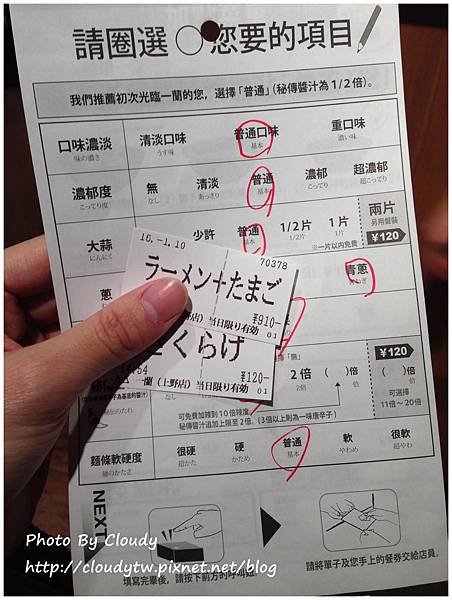 請圈選 ○ 您要的項目
我們推薦初次光臨一蘭的您，選擇「普通」(秘傳醬汁為 1/2 倍)。
口味濃淡 清淡口味 普通口味 重口味
味の濃さ うす味 基本 濃い味
濃郁度 無 清淡 普通 濃郁 超濃郁
こってり度 なし あっさり 基本 こってり 超こってり
大蒜 少許 普通 1/2片 1片 兩片
にんにく 基本 1/2片 1片 另用盤裝
※一片以內免費 ¥120
蔥 青蔥
16.-1.10 70378
ラーメン+たまご
¥910-
野店）当日限り有効 01
くらげ
¥120-
一蘭（上野店）当日限り有効 01
¥120
2倍 ( )倍 ( )倍
2倍 倍
可選擇
11倍～20倍
可免費加辣到 10 倍辣度。
秘傳醬汁追加上限至 2倍。(3倍以上則為一味唐辛子)
麵條軟硬度 很硬 硬 普通 軟 很軟
麺のかたさ 超かた かため 基本 やわめ 超やわ
NEXT
填寫完畢後，請按下前方的呼叫鈕。
請將單子及您手上的餐券交給店員。
Photo By Cloudy
http://cloudytw.pixnet.net/blog